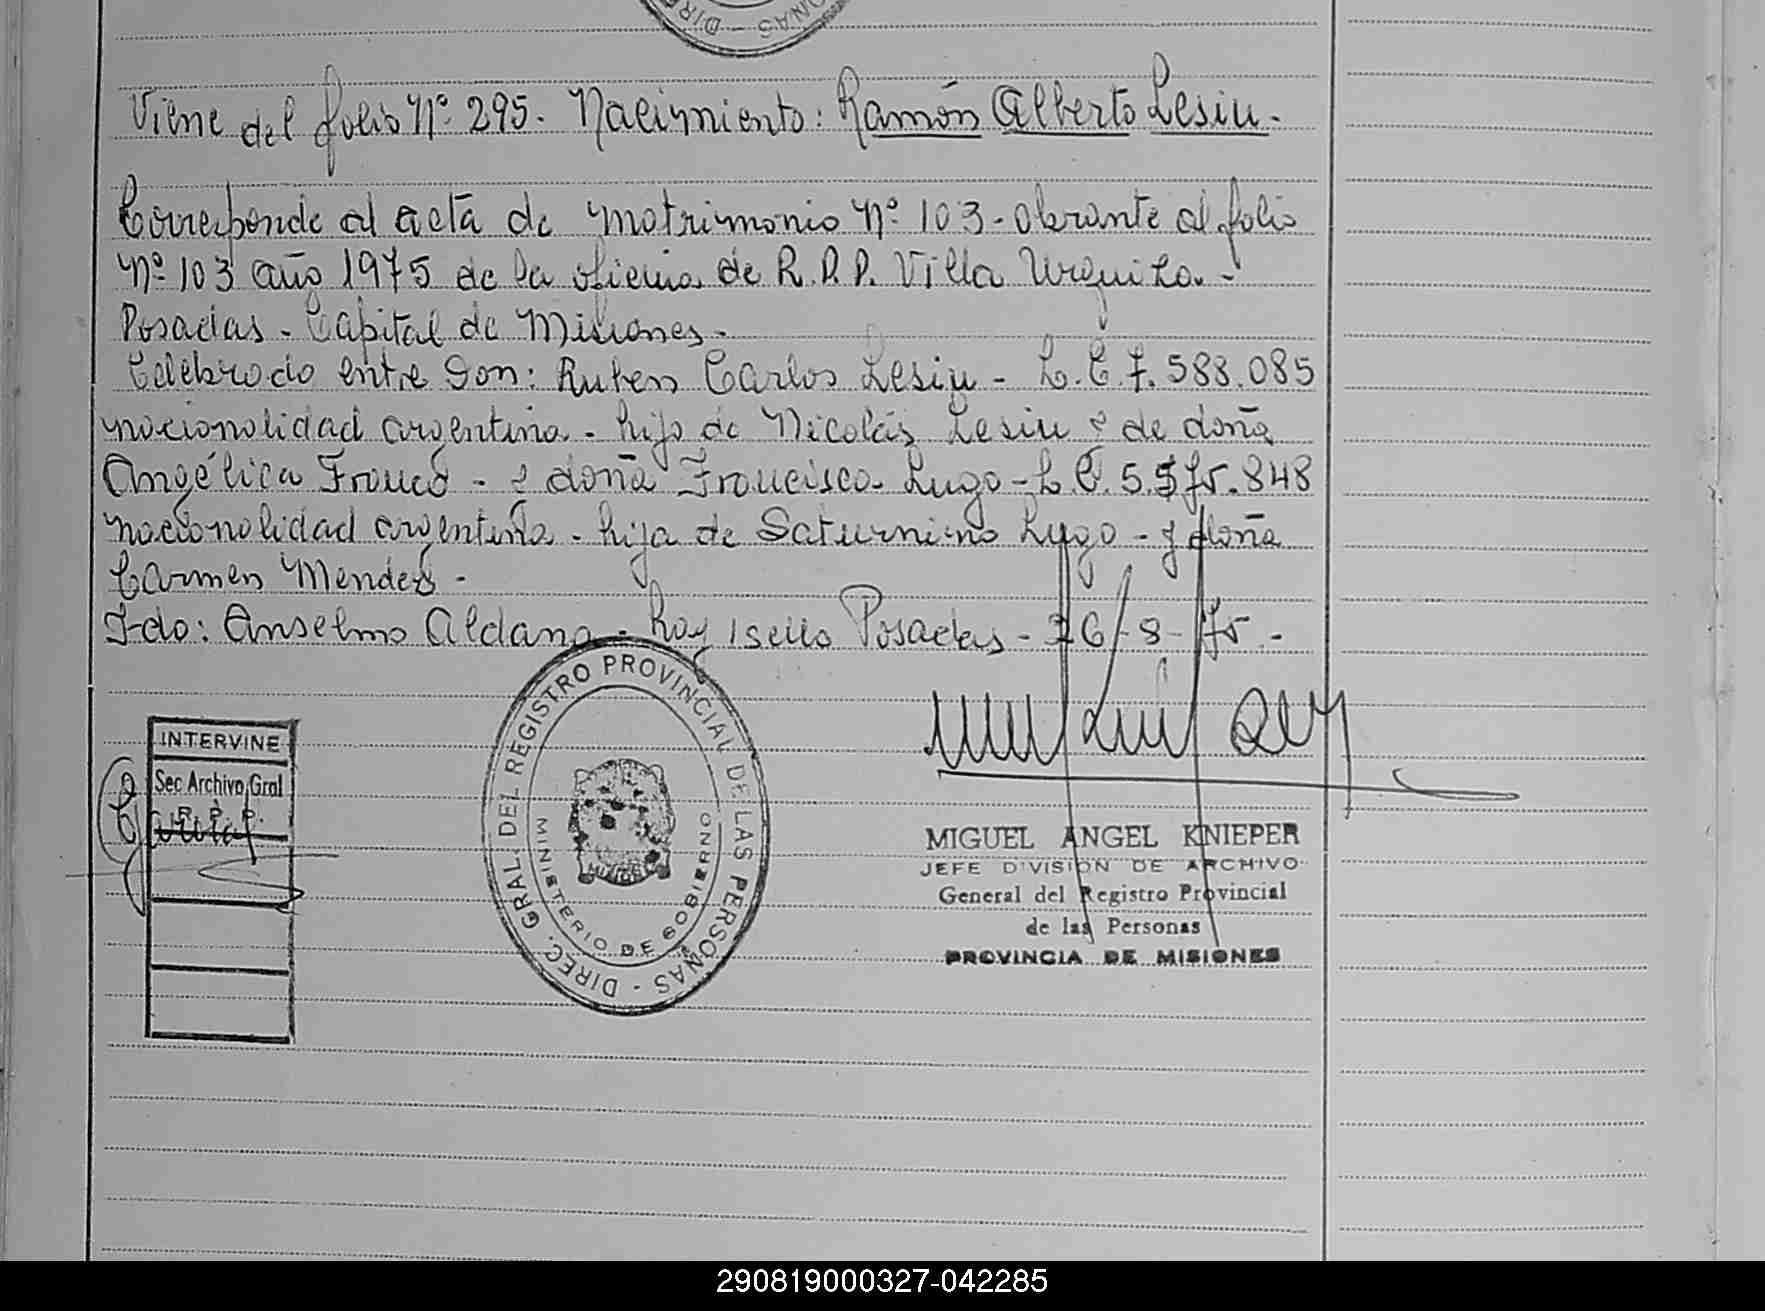 DIREC. - SONAS
Viene del folio Nº 295. Nacimiento: Ramón Alberto Lesiu.
Corresponde al acta de matrimonio Nº 103 - obrante al folio
Nº 103 año 1975 de la oficina de R.P.P. Villa Urquiza. -
Posadas - Capital de Misiones. -
Celebrado entre Don: Ruben Carlos Lesiu - L.E. 7.588.085
nacionalidad argentina - hijo de Nicolás Lesiu y de doña
Angélica Franco - y doña Francisca Lugo - L.C. 5.575.848
nacionalidad argentina - hija de Saturnino Lugo - y doña
Carmen Mendes -
Fdo: Anselmo Aldana - Posadas - 26-8-75. -
INTERVINE
Sec Archivo Gral
R. P. P.
DIREC. GRAL. DEL REGISTRO PROVINCIAL DE LAS PERSONAS -
MINISTERIO DE GOBIERNO
MIGUEL ANGEL KNIEPER
JEFE DIVISION DE ARCHIVO
General del Registro Provincial
de las Personas
PROVINCIA DE MISIONES
290819000327-042285